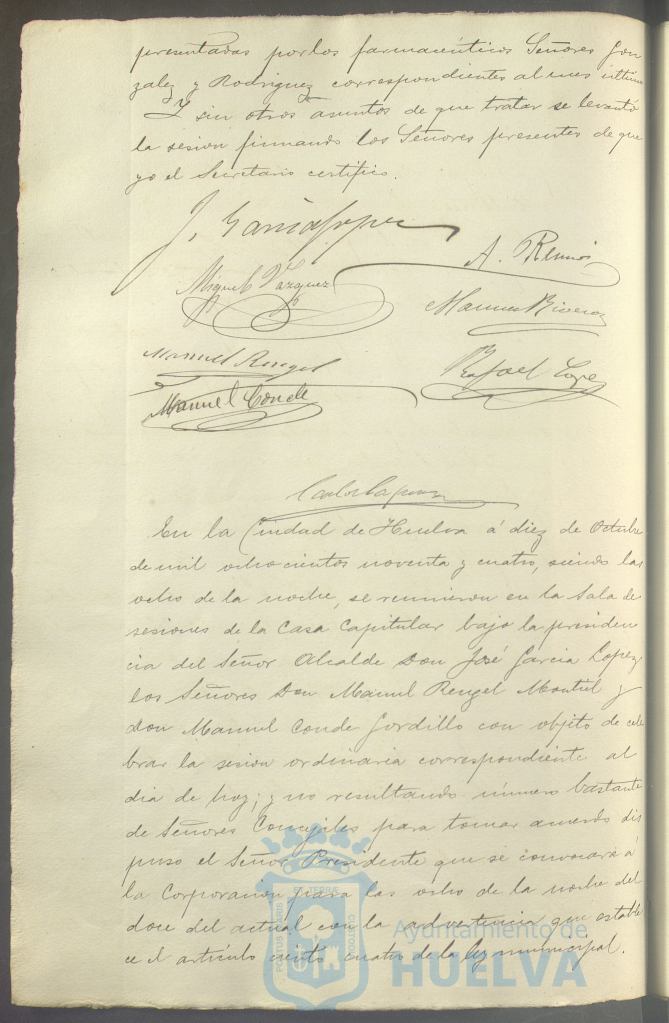 presentadas por los farmacéuticos Señores Gon
zalez y Rodriguez correspondientes al mes ultimo
Y sin otros asuntos de que tratar se levantó
la sesion firmando los Señores presentes de que
yo el Secretario certifico.
J. Garcia Lopez
A. Remis
Miguel Vazquez
Manuel Riveros
Manuel Rengel
Rafael Lope
Manuel Conde
Carlos
En la Ciudad de Huelva á diez de Octubre
de mil ochocientos noventa y cuatro, siendo las
ocho de la noche, se reunieron en la Sala de
sesiones de la Casa Capitular bajo la presiden
cia del Señor Alcalde Don José Garcia Lopez
los Señores Don Manuel Rengel Montiel y
don Manuel Conde Gordillo con objeto de cele
brar la sesion ordinaria correspondiente al
dia de hoy; y no resultando número bastante
de Señores Concejales para tomar acuerdo dis
puso el Señor Presidente que se convocara á
la Corporacion para las ocho de la noche del
doce del actual con la advertencia que estable
ce el artículo ciento cuatro de la ley municipal.
PORTUS MARIS ET TERRAE CUSTODIA
Ayuntamiento de
HUELVA